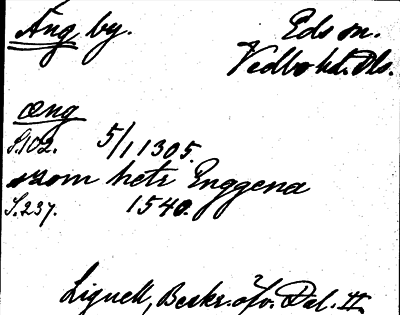 Äng by. Eds sn.
Vedbo hd. Dls.
æng
S.102. 5/1 1305.
som hetr Enggena
S.237. 1540.
Lignell, Beskr. öfv. Dal. II.